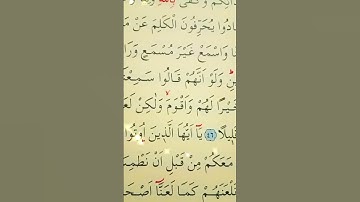 دَٓائِكُمْ وَكَفٰى بِاللّٰهِ
هَادُوا يُحَرِّفُونَ الْكَلِمَ عَنْ مَ
نَا وَاسْمَعْ غَيْرَ مُسْمَعٍ وَرَا
وَلَوْ اَنَّهُمْ قَالُوا سَمِعْ
خَيْرًا لَهُمْ وَاَقْوَمَ وَلٰكِنْ لَعَ
قَلِيلًا ﴿٤٦﴾ يَٓا اَيُّهَا الَّذِينَ اُوتُوا
مَعَكُمْ مِنْ قَبْلِ اَنْ نَطْمِ
نَلْعَنَهُمْ كَمَا لَعَنَّٓا اَصْحَا